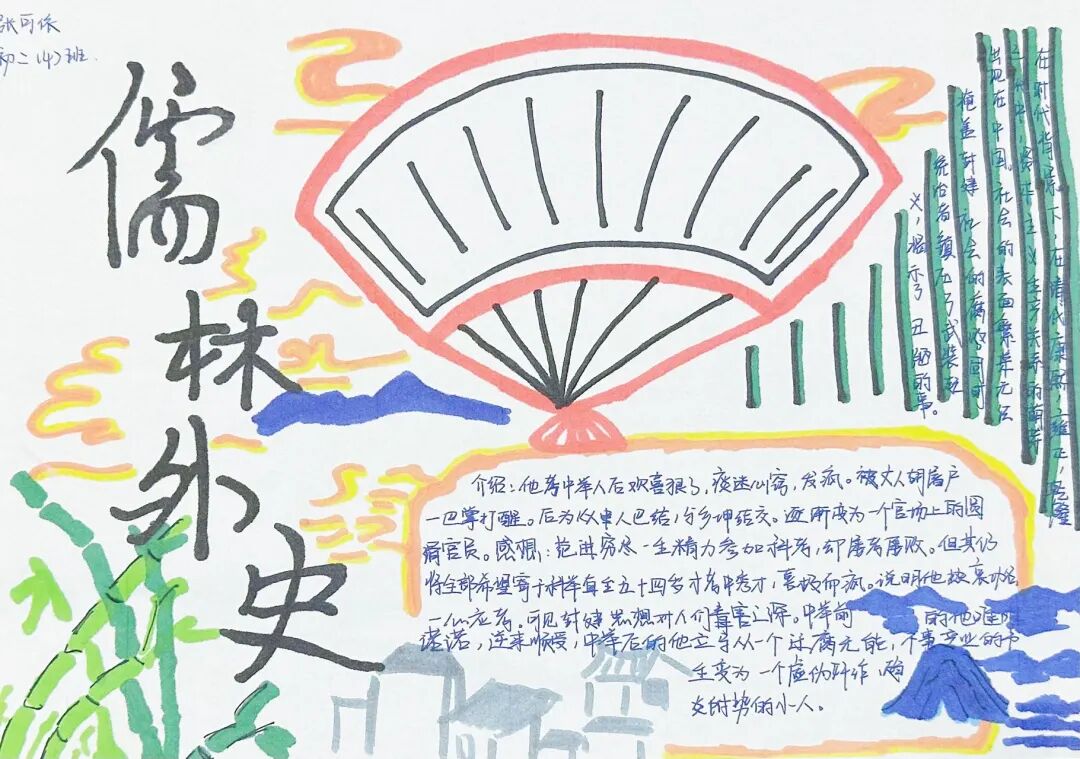 张可依
初二(4)班
儒林外史
在时代背景下,在清代康熙,雍正,乾隆
三代中,资本主义生产关系的萌芽
出现在中国。社会的表面繁荣无法
掩盖封建社会的腐败同时
统治者镇压了武装起
义,揭示了丑陋的事。
介绍:他考中举人后欢喜狠了,痰迷心窍,发疯。被丈人胡屠户
一巴掌打醒。后为众人巴结,与乡绅结交。逐渐变为一个官场上的圆
滑官员。感想:范进穷尽一生精力参加科考,却屡考屡败。但其仍
将全部希望寄于科举直至五十四岁才考中秀才,喜极而疯。说明他
一心应考。可见封建思想对人们毒害之深。中举前的他唯唯
诺诺,逆来顺受,中举后的他立马从一个迂腐无能,不事
生变为一个虚伪
炎附势的小人。